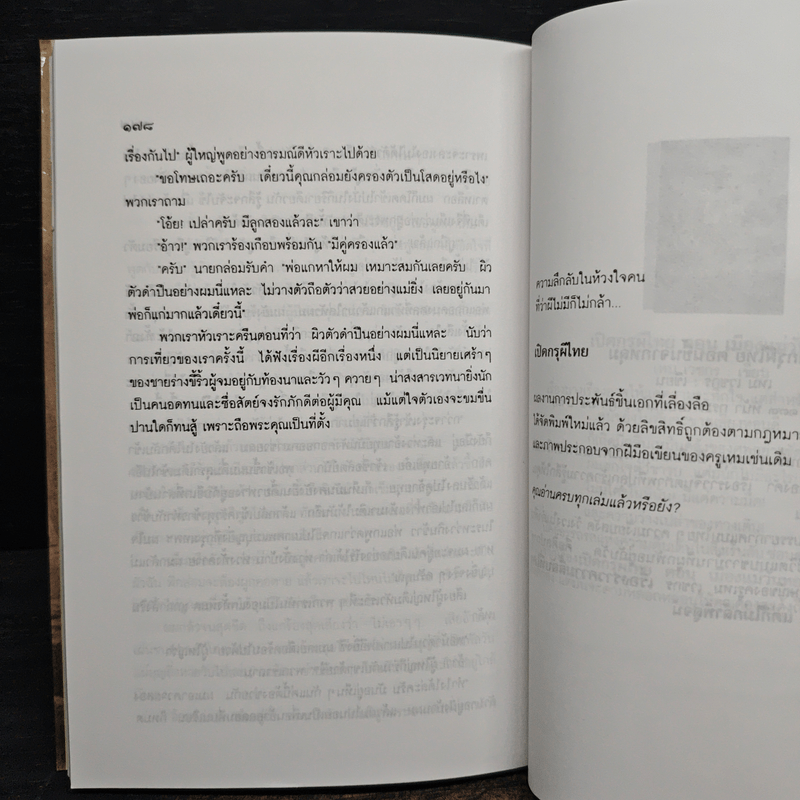 ๑๗๘
เรื่องกันไป" ผู้ใหญ่พูดอย่างอารมณ์ดีหัวเราะไปด้วย
"ขอโทษเถอะครับ เดี๋ยวนี้คุณกล่อมยังครองตัวเป็นโสดอยู่หรือไง"
พวกเราถาม
"โอ้ย! เปล่าครับ มีลูกสองแล้วละ" เขาว่า
"อ้าว!" พวกเราร้องเกือบพร้อมกัน "มีคู่ครองแล้ว"
"ครับ" นายกล่อมรับคำ "พ่อแกหาให้ผม เหมาะสมกันเลยครับ ผิว
ตัวดำปีนอย่างผมนี่แหละ ไม่วางตัวถือตัวว่าสวยอย่างแม่ยิ่ง เลยอยู่กันมา
พ่อก็แก่มากแล้วเดี๋ยวนี้"
พวกเราหัวเราะครืนตอนที่ว่า ผิวตัวดำปีนอย่างผมนี่แหละ นับว่า
การเที่ยวของเราครั้งนี้ ได้ฟังเรื่องผีอีกเรื่องหนึ่ง แต่เป็นนิยายเศร้าๆ
ของชายร่างขี้ริ้วผู้จมอยู่กับท้องนาและวัวๆ ควายๆ น่าสงสารเวทนายิ่งนัก
เป็นคนอดทนและซื่อสัตย์จงรักภักดีต่อผู้มีคุณ แม้แต่ใจตัวเองจะขมขื่น
ปานใดก็ทนสู้ เพราะถือพระคุณเป็นที่ตั้ง
ความลึกลับในห้วงใจคน
ที่ว่าผีไม่มีก็ไม่กล้า...
เปิดกรุผีไทย
ผลงานการประพันธ์ชิ้นเอกที่เลื่องลือ
ได้จัดพิมพ์ใหม่แล้ว ด้วยลิขสิทธิ์ถูกต้องตามกฎหมา
และภาพประกอบจากฝีมือเขียนของครูเหมเช่นเดิม
คุณอ่านครบทุกเล่มแล้วหรือยัง?